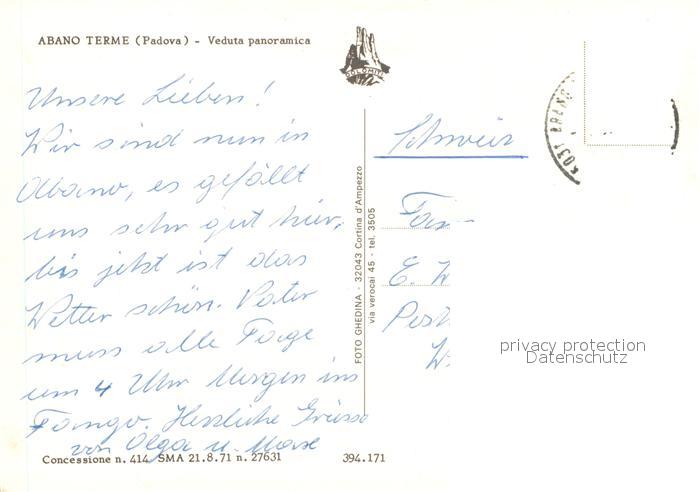 ABANO TERME (Padova) - Veduta panoramica
DOLOMITI
Unsere Lieben!
Wir sind nun in
Abano, es gefällt
uns sehr gut hier,
bis jetzt ist das
Wetter schön. Vater
muss alle Tage
um 4 Uhr Morgen ins
Fango. Herzliche Grüsse
von Olga u. Max
Concessione n. 414 SMA 21.8.71 n. 27631
394.171
FOTO GHEDINA - 32043 Cortina d'Ampezzo
via verocai 45 - tel. 3505
Schweiz
Fam
E. W
Post
W.
privacy protection
Datenschutz